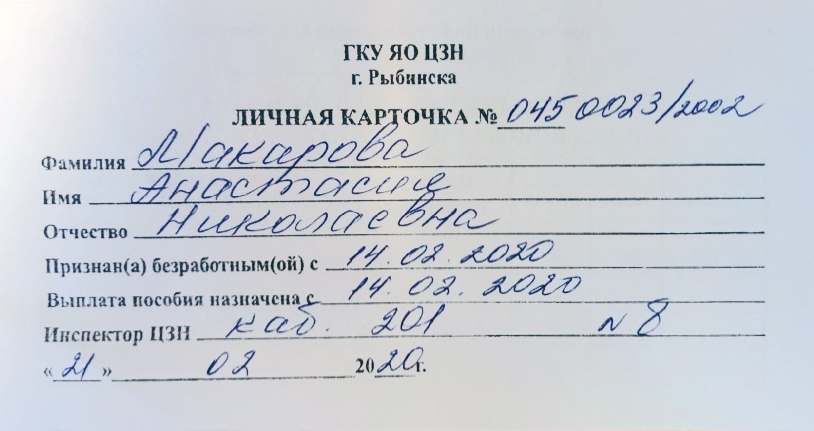 ГКУ ЯО ЦЗН
г. Рыбинска
ЛИЧНАЯ КАРТОЧКА № 0450023/2002
Фамилия Макарова
Имя Анастасия
Отчество Николаевна
Признан(а) безработным(ой) с 14.02.2020
Выплата пособия назначена с 14.02.2020
Инспектор ЦЗН каб. 201 N 8
«21» 02 2020г.